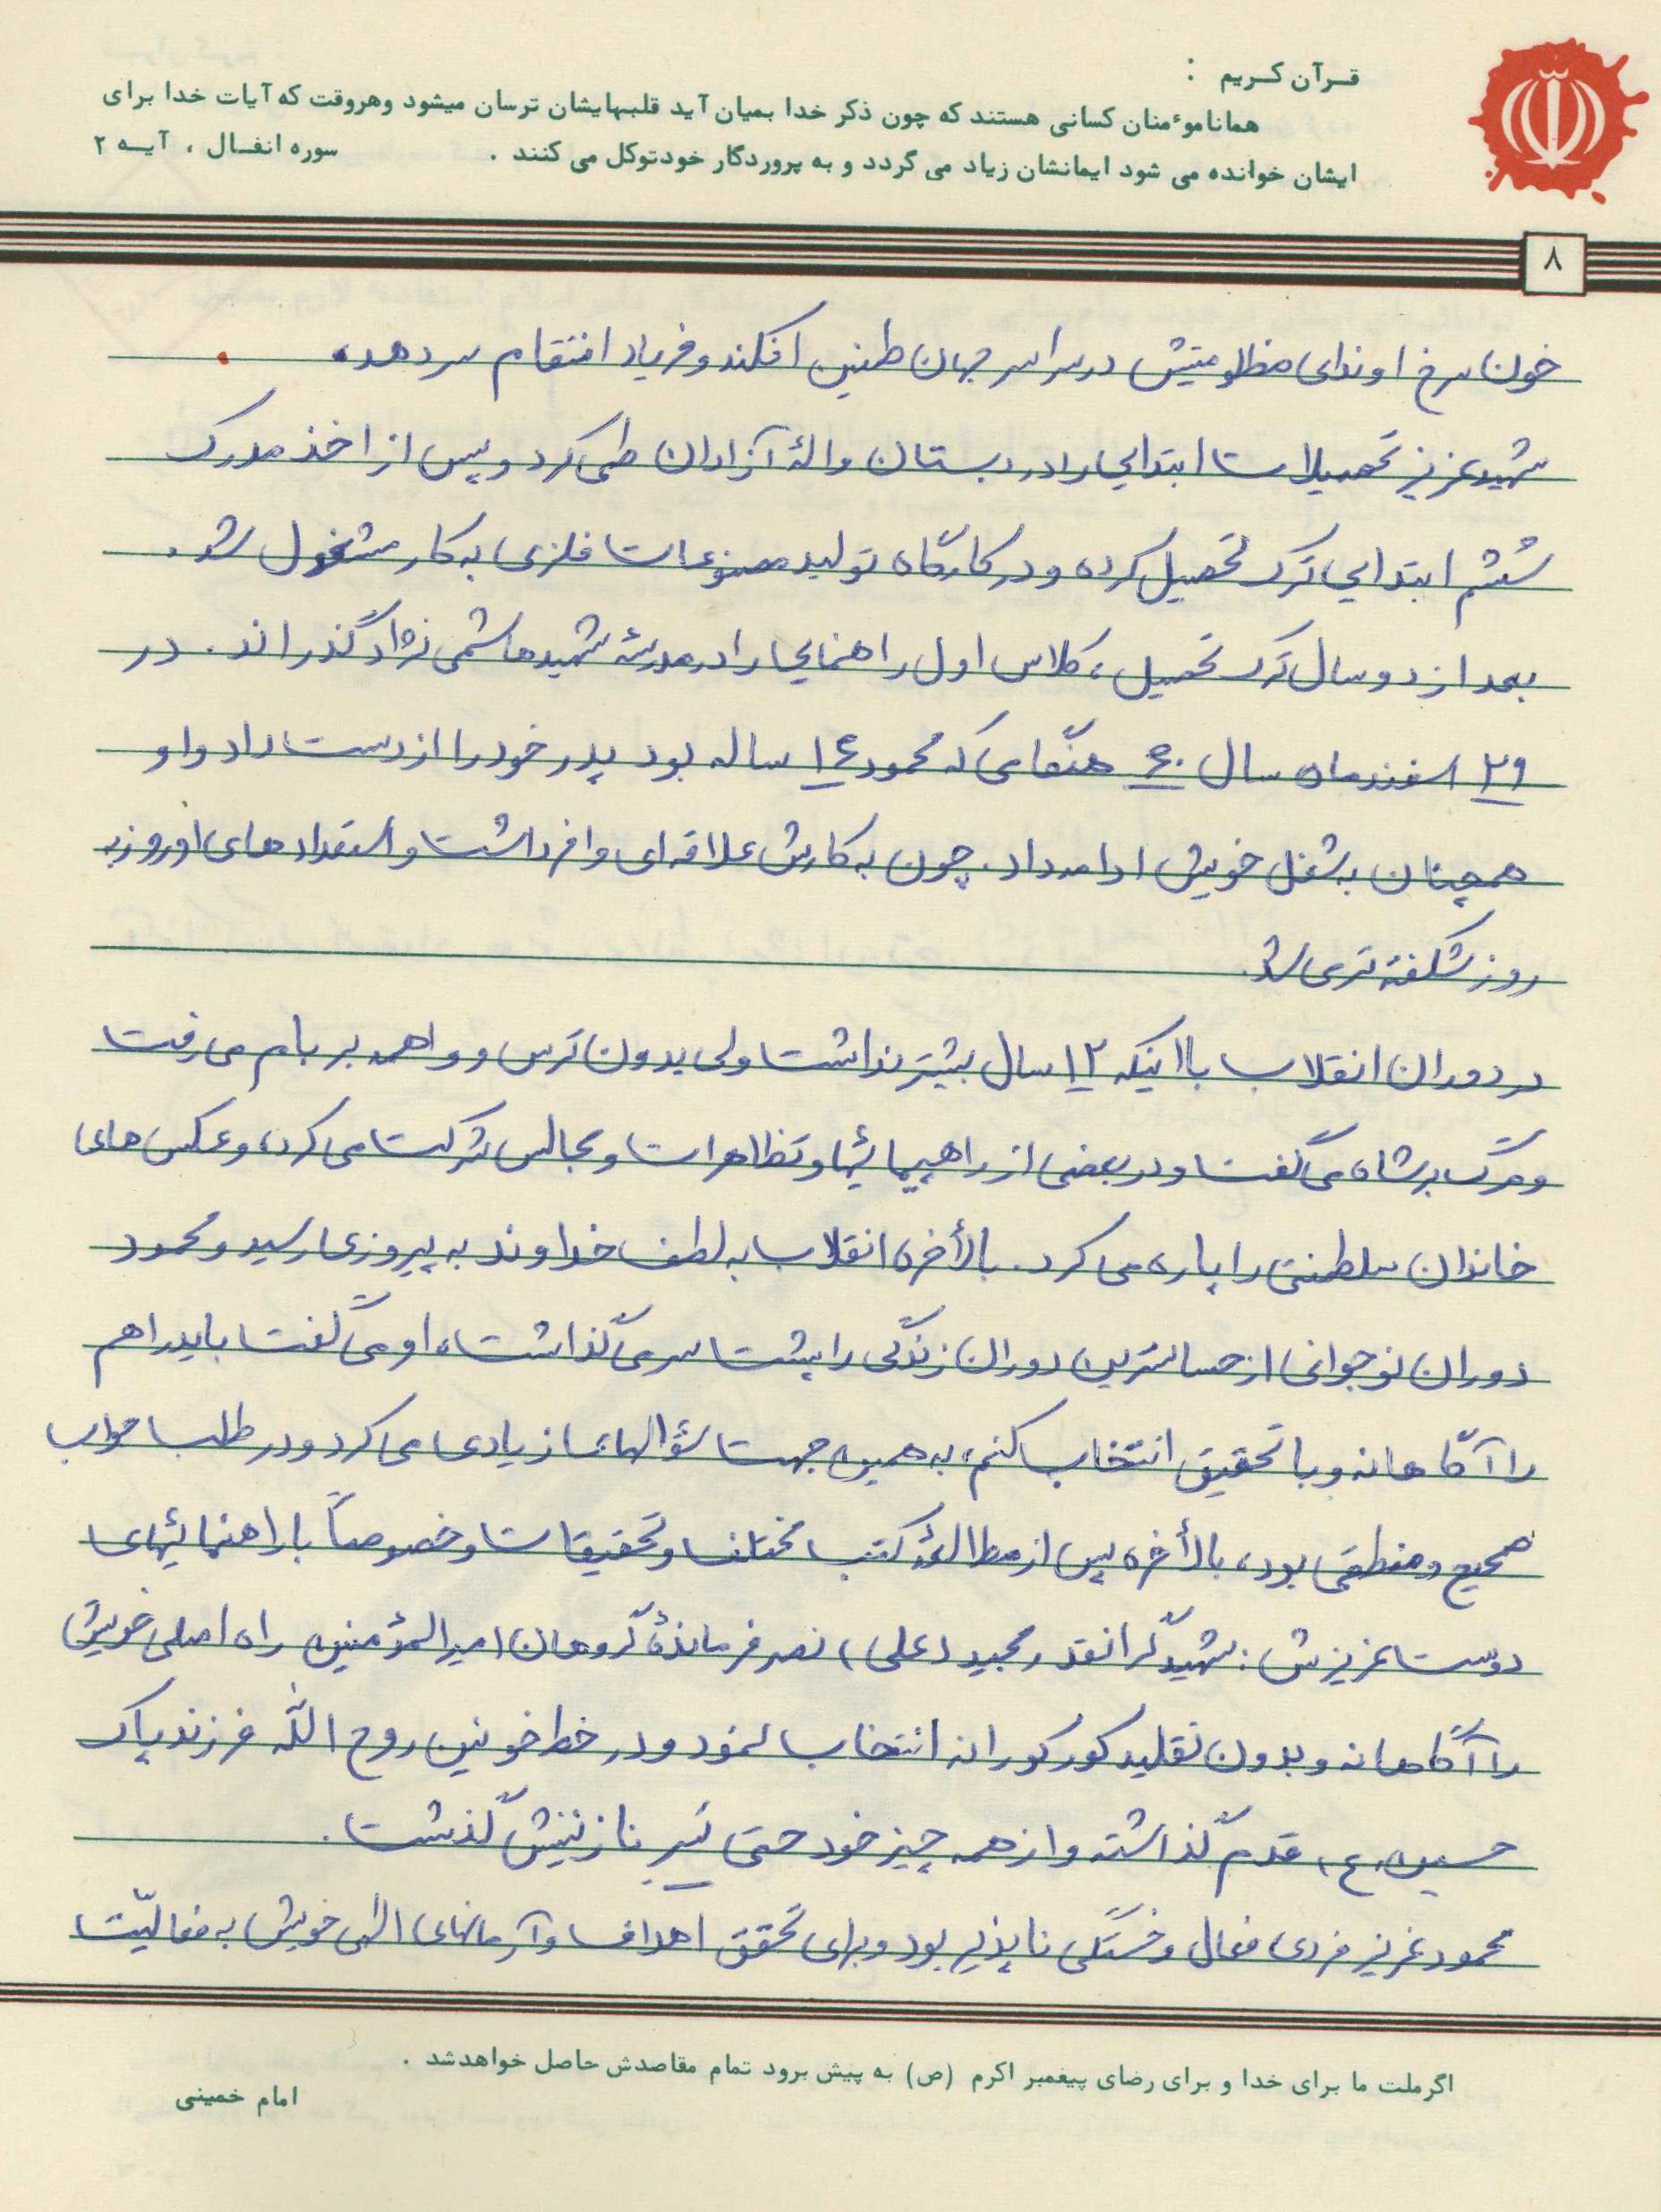 قرآن کریم :
همانا موءمنان کسانی هستند که چون ذکر خدا بمیان آید قلبهایشان ترسان میشود وهروقت که آیات خدا برای
ایشان خوانده می شود ایمانشان زیاد می گردد و به پروردگار خودتوکل می کنند . سوره انفال ، آیه ۲
۸
خون سرخ او ندای مظلومیتش در سراسر جهان طنین افکند و فریاد انتقام سر دهد.
شهید عزیز تحصیلات ابتدایی را در دبستان والهٔ آزادان طی کرد و پس از اخذ مدرک
ششم ابتدایی ترک تحصیل کرده و در کارگاه تولید مصنوعات فلزی به کار مشغول شد.
بعد از دو سال ترک تحصیل، کلاس اول راهنمایی را در مدرسهٔ شهید هاشمی نژاد گذراند. در
۲۹ اسفندماه سال ۶۰ هنگامی که محمود ۱۶ ساله بود پدر خود را از دست داد و او
همچنان به شغل خویش ادامه داد. چون به کارش علاقه ای وافر داشت و استعدادهای او روز به
روز شکفته تر می شد.
در دوران انقلاب با اینکه ۱۲ سال بیشتر نداشت ولی بدون ترس و واهمه بر بام می رفت
و مرگ بر شاه می گفت و در بعضی از راهپیمائیها و تظاهرات و مجالس شرکت می کرد، و عکس های
خاندان سلطنتی را پاره می کرد. بالأخره انقلاب به لطف خداوند به پیروزی رسید و محمود
دوران نوجوانی از حساسترین دوران زندگی را پشت سر می گذاشت، او می گفت باید راهم
را آگاهانه و با تحقیق انتخاب کنم، به همین جهت سؤالهای زیادی می کرد و در طلب جواب
صحیح و منطقی بود، بالأخره پس از مطالعهٔ کتب مختلف و تحقیقات و خصوصاً با راهنمائیهای
دوست عزیزش: شهید گرانقدر مجید (علی) نصر فرماندهٔ گروهان امیرالمؤمنین راه اصلی خویش
را آگاهانه و بدون تقلید کورکورانه انتخاب نمود و در خط خونین روح الله فرزند پاک
حسین(ع) قدم گذاشته و از همه چیز خود حتی نازنینش گذشت.
محمود عزیز فردی فعال و خستگی ناپذیر بود و برای تحقق اهداف و آرمانهای الهی خویش به فعالیّت
اگرملت ما برای خدا و برای رضای پیغمبر اکرم (ص) به پیش برود تمام مقاصدش حاصل خواهدشد .
امام خمینی